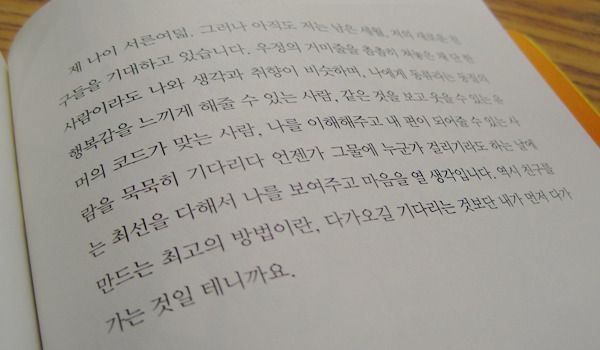 제 나이 서른여덟. 그러나 아직도 저는 남은 세월, 저의 새로운 친
구들을 기대하고 있습니다. 우정의 거미줄을 촘촘히 쳐놓은 채 단 한
사람이라도 나와 생각과 취향이 비슷하며, 나에게 동류라는 동질의
행복감을 느끼게 해줄 수 있는 사람, 같은 것을 보고 웃을 수 있는 유
머의 코드가 맞는 사람, 나를 이해해주고 내 편이 되어줄 수 있는 사
람을 묵묵히 기다리다 언젠가 그물에 누군가 걸리기라도 하는 날에
는 최선을 다해서 나를 보여주고 마음을 열 생각입니다. 역시 친구를
만드는 최고의 방법이란, 다가오길 기다리는 것보단 내가 먼저 다가
가는 것일 테니까요.